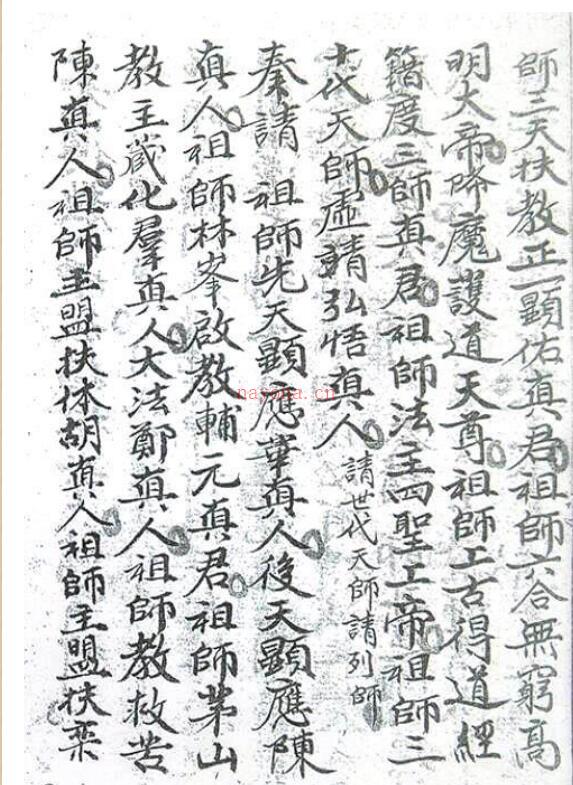 師三天扶教正一顯佑真君祖師六合無窮高
明大帝降魔護道天尊祖師上古得道經
籍度三師真君祖師法主四聖上帝祖師三
十代天師虛靖弘悟真人 請世代天師請列師
奏請 祖師先天顯應華真人後天顯應陳
真人祖師林峯啟教輔元真君祖師茅山
教主葳化羣真人大法鄭真人祖師教救苦
陳真人祖師主盟扶休胡真人祖師主盟扶栾
nayona.cn